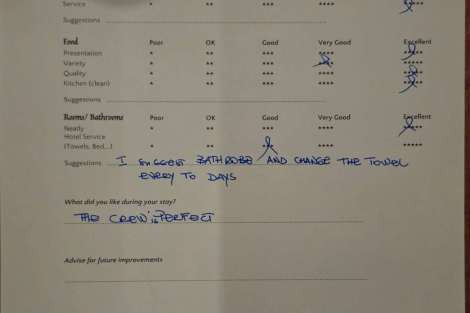 Service * ** *** **** *****
Suggestions
Food Poor OK Good Very Good Excellent
Presentation * ** *** **** *****
Variety * ** *** **** *****
Quality * ** *** **** *****
Kitchen (clean) * ** *** **** *****
Suggestions
Rooms/ Bathrooms Poor OK Good Very Good Excellent
Neady * ** *** **** *****
Hotel Service
(Towels, Bed,...) * ** *** **** *****
Suggestions I SUGGEST BATHROBE AND CHANGE THE TOWEL
EVERY TO DAYS
What did you like during your stay?
THE CREW is PERFECT
Advise for future improvements